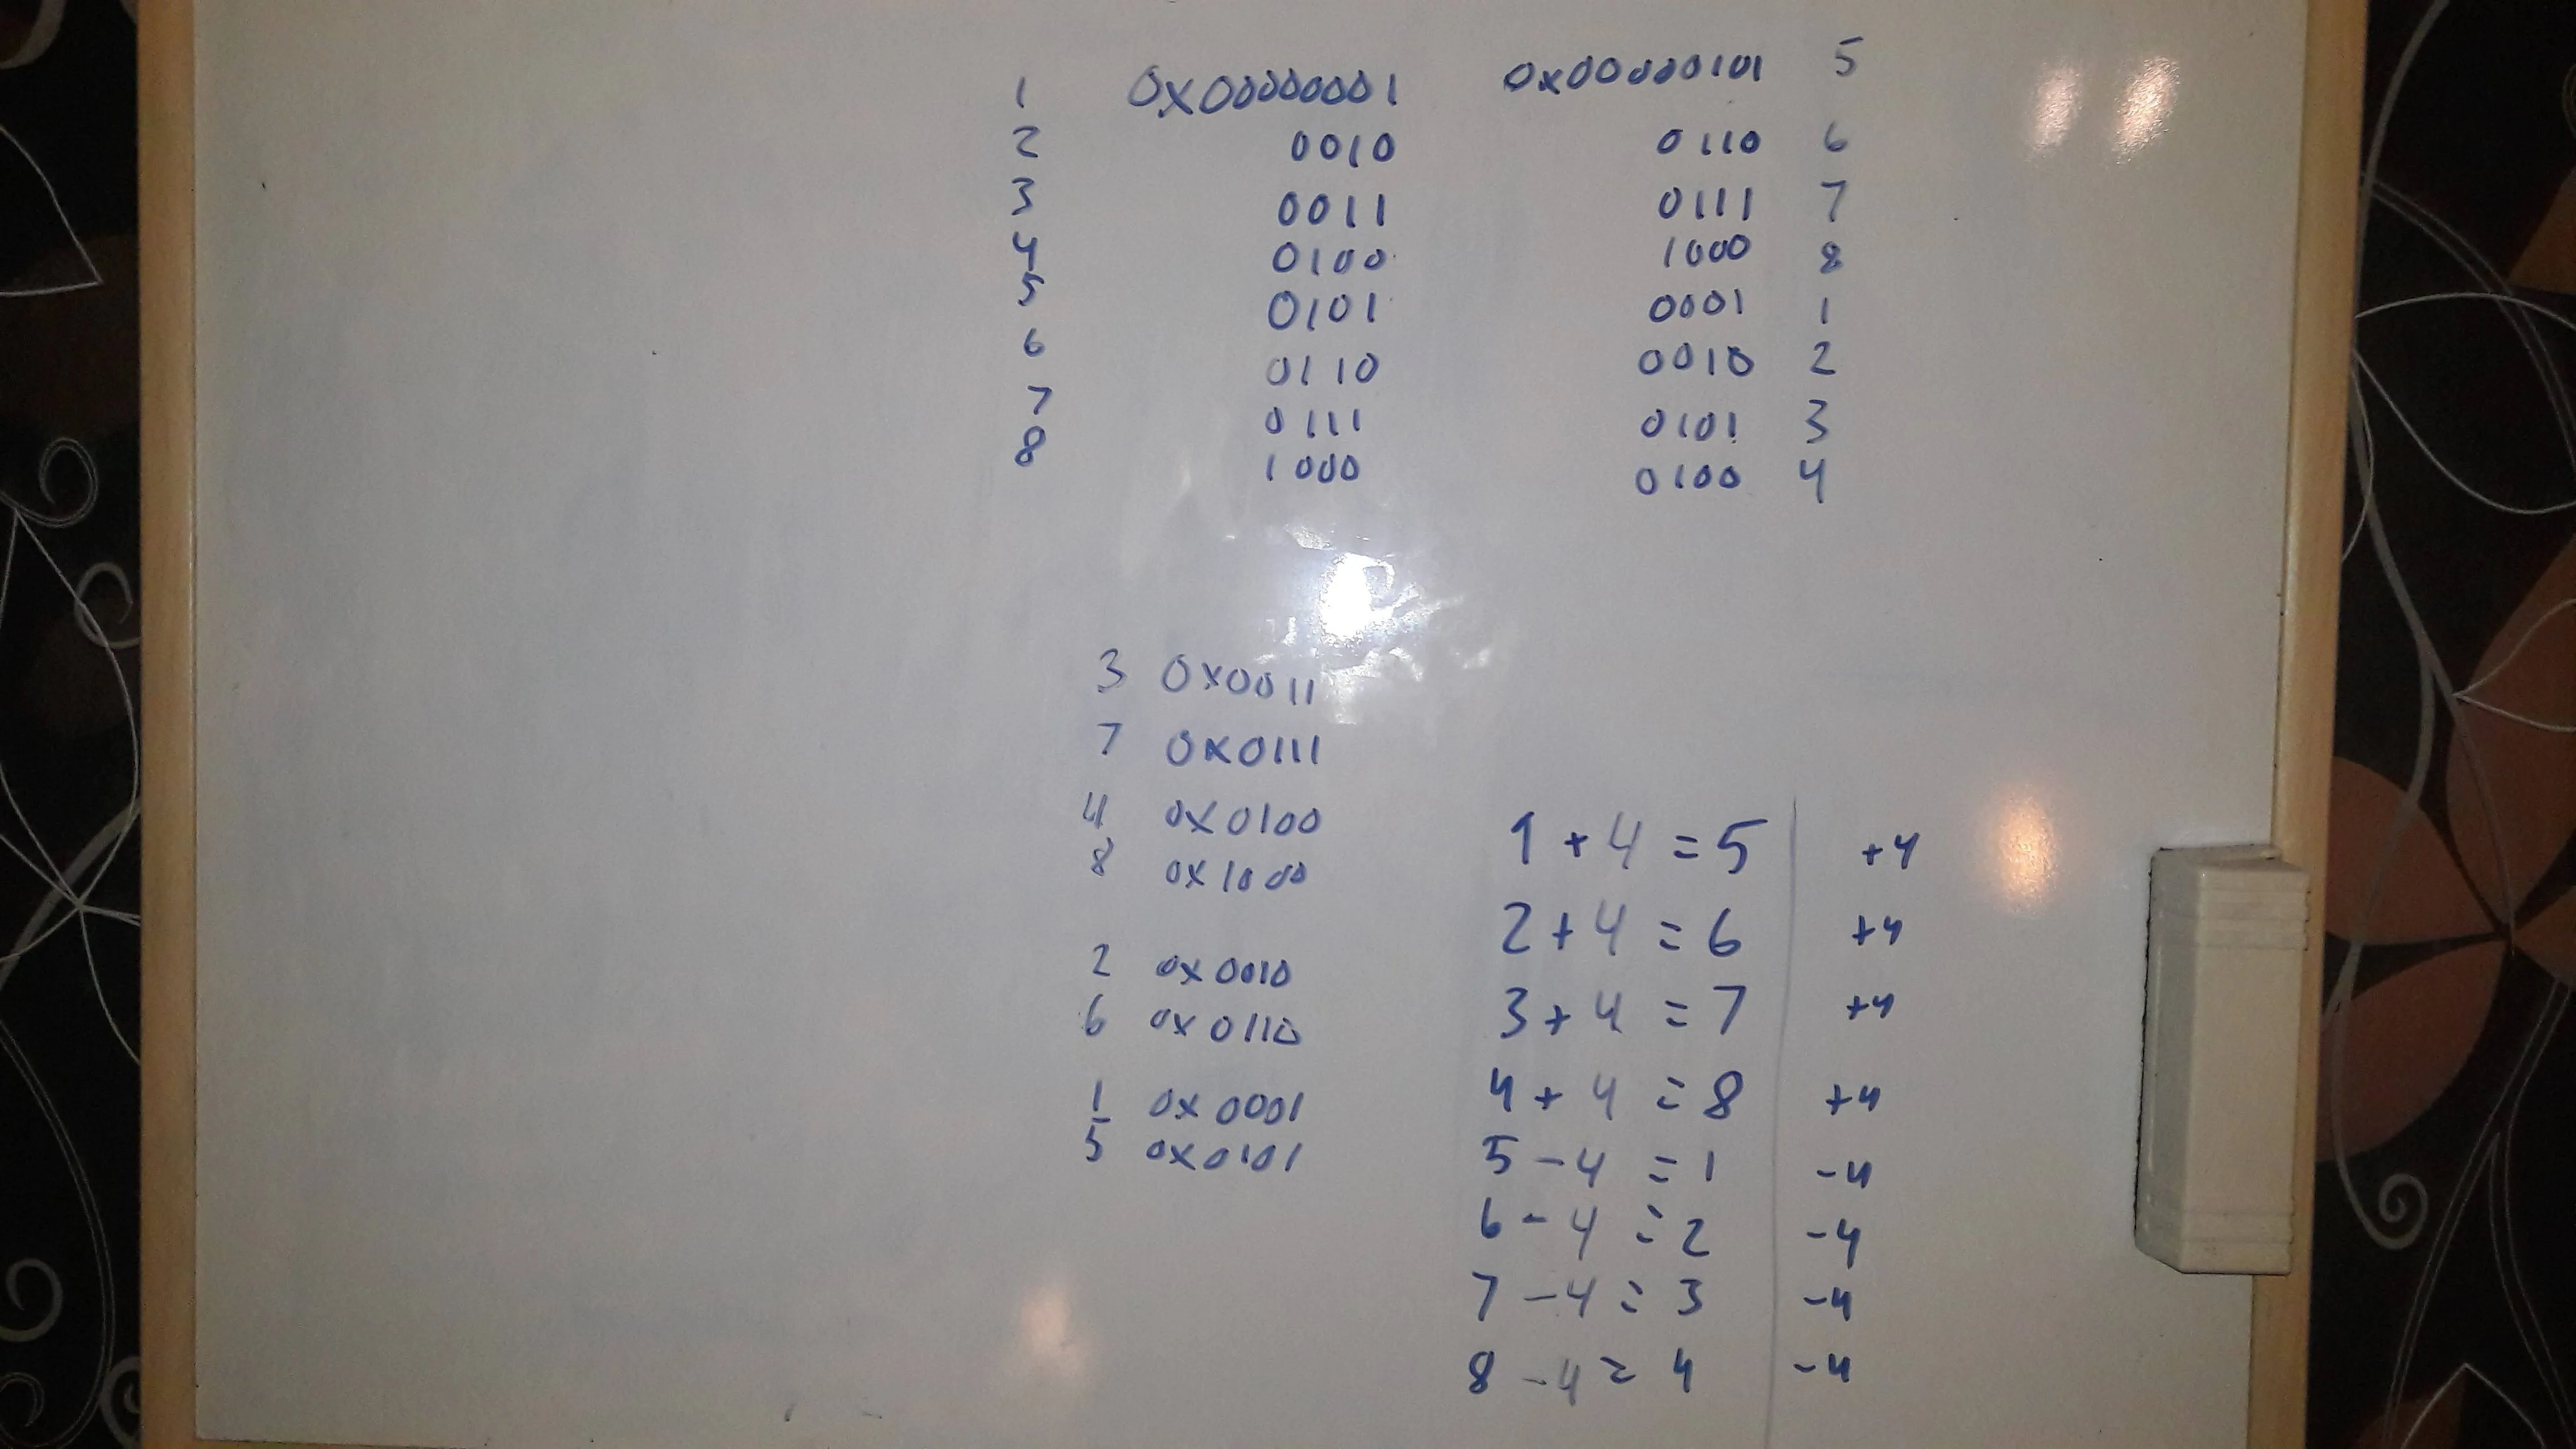 1 0x00000001 0x00000101 5
2 0010 0110 6
3 0011 0111 7
4 0100 1000 8
5 0101 0001 1
6 0110 0010 2
7 0111 0101 3
8 1000 0100 4
3 0x0011
7 0x0111
4 0x0100
8 0x1000
2 0x0010
6 0x0110
1 0x0001
5 0x0101
1 + 4 = 5 +4
2 + 4 = 6 +4
3 + 4 = 7 +4
4 + 4 = 8 +4
5 - 4 = 1 -4
6 - 4 = 2 -4
7 - 4 = 3 -4
8 - 4 = 4 -4